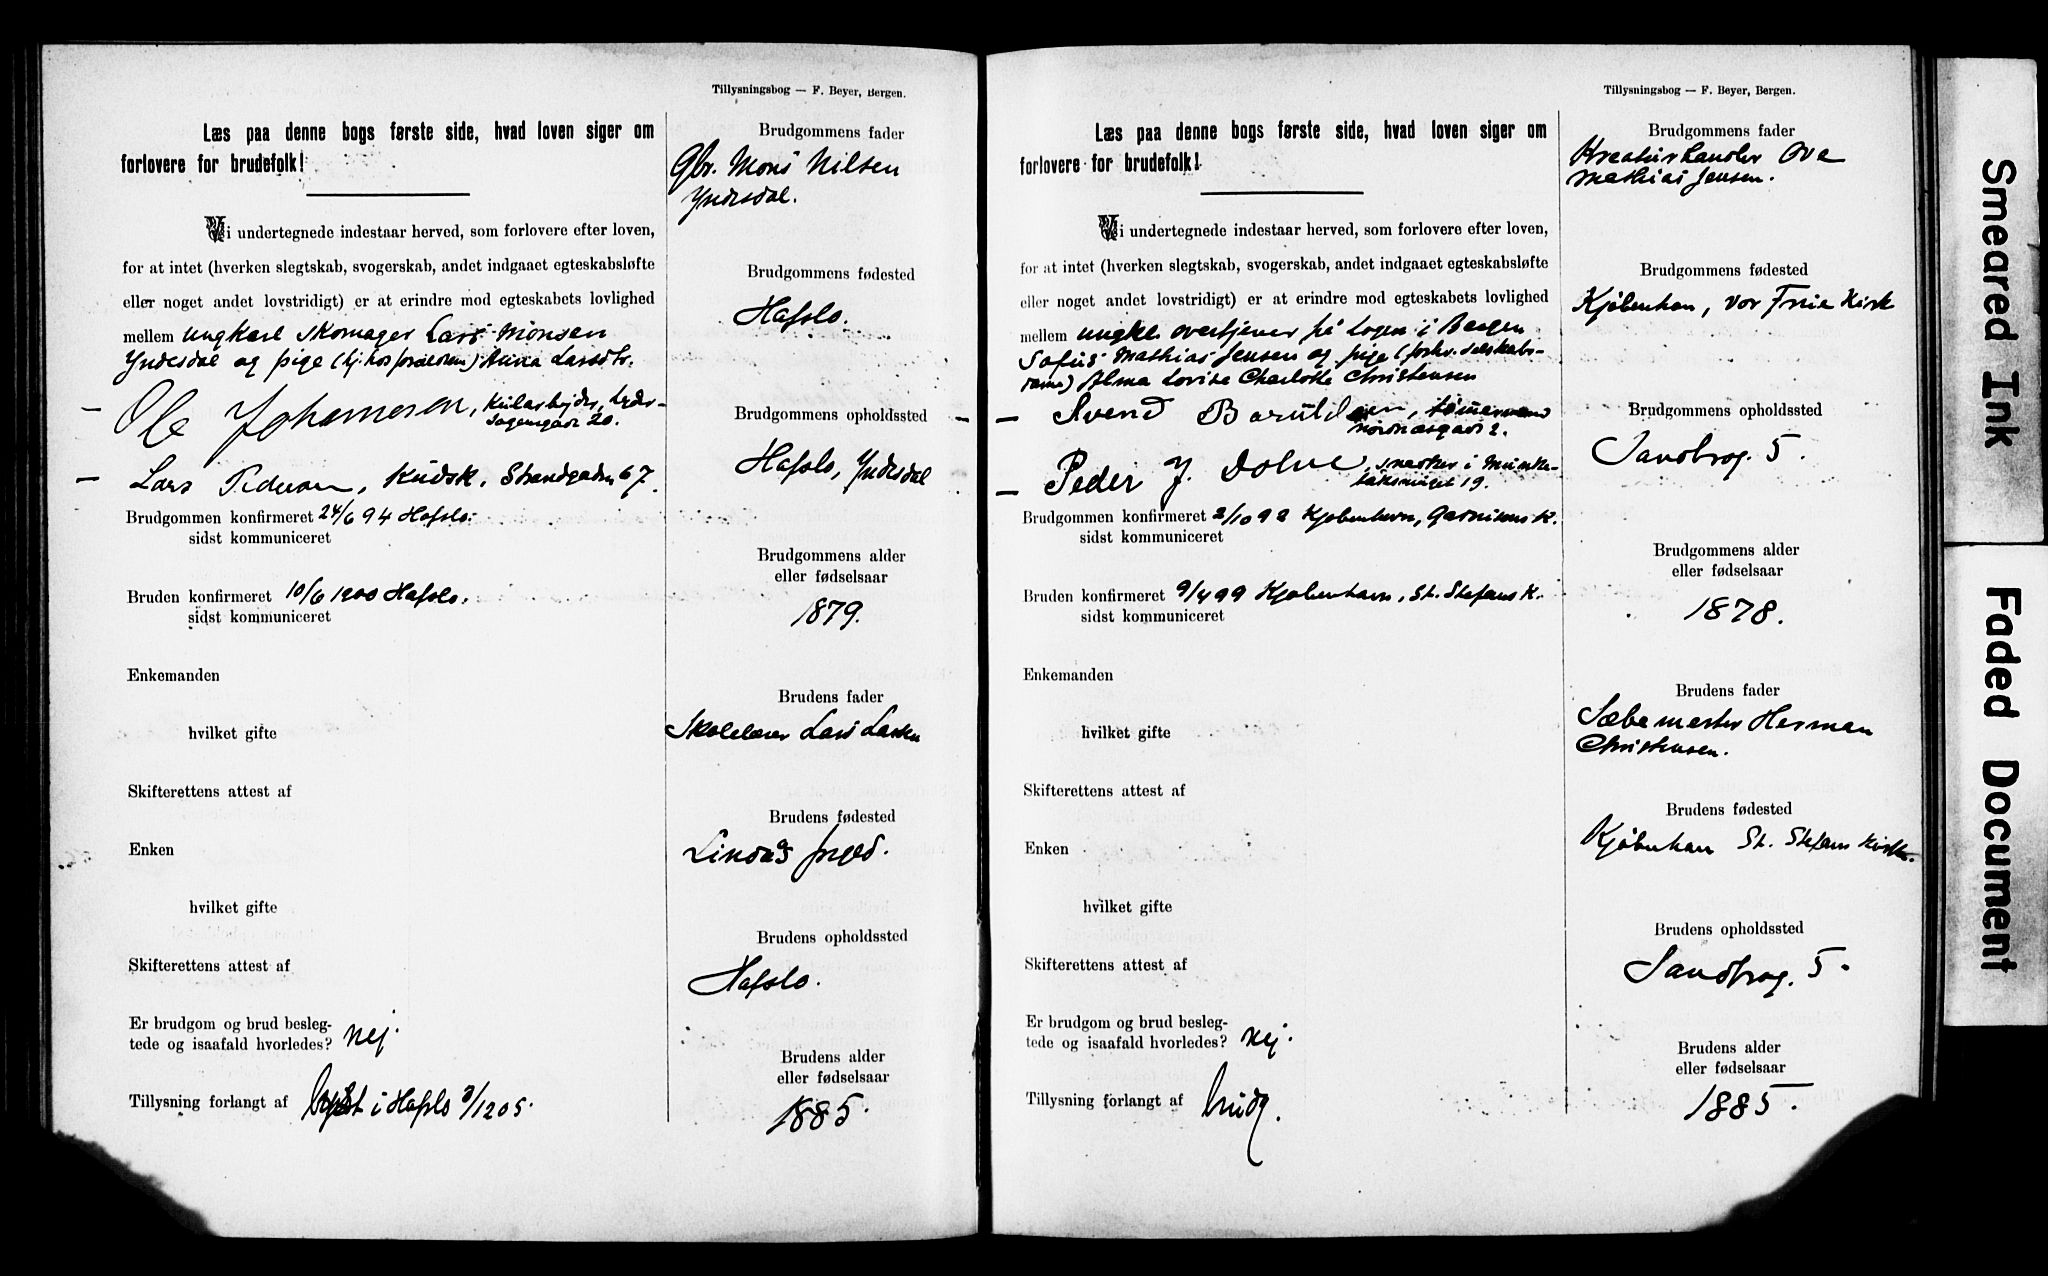 Tillysningsbog — F. Beyer, Bergen.
Læs paa denne bogs første side, hvad loven siger om
forlovere for brudefolk!
Vi undertegnede indestaar herved, som forlovere efter loven,
for at intet (hverken slegtskab, svogerskab, andet indgaaet egteskabsløfte
eller noget andet lovstridigt) er at erindre mod egteskabets lovlighed
mellem ungkarl skomager Lars Monsen
Yndesdal og pige (hj. hos forældren) Anna Larsdtr.
Ole Johannesen, Kularbejder,
20.
Lars Pedersen, Kudsk, Strandgaden 67.
Brudgommen konfirmeret 24/6 94 Hafslo.
sidst kommuniceret
Bruden konfirmeret 10/6 1900 Hafslo.
sidst kommuniceret
Enkemanden
hvilket gifte
Skifterettens attest af
Enken
hvilket gifte
Skifterettens attest af
Er brudgom og brud besleg-
tede og isaafald hvorledes? nej.
Tillysning forlangt af lyst i Hafslo 3/12 05.
Brudgommens fader
Gbr. Mons Nilsen
Yndesdal.
Brudgommens fødested
Hafslo.
Brudgommens opholdssted
Hafslo, Yndesdal
Brudgommens alder
eller fødselsaar
1879.
Brudens fader
Skolelærer Lars Larsen
Brudens fødested
Lindås prgd.
Brudens opholdssted
Hafslo.
Brudens alder
eller fødselsaar
1885.
Tillysningsbog — F. Beyer, Bergen.
Læs paa denne bogs første side, hvad loven siger om
forlovere for brudefolk!
Vi undertegnede indestaar herved, som forlovere efter loven,
for at intet (hverken slegtskab, svogerskab, andet indgaaet egteskabsløfte
eller noget andet lovstridigt) er at erindre mod egteskabets lovlighed
mellem ungk. overtjener på logen i Bergen
Sofus Mathias Jensen og pige (forhv. selskabs-
dame) Alma Lovise Charlotte Christensen
Svend tømmermand
Nordnæsgade 2.
Peder J. Dolve, snedker i Munke-
19.
Brudgommen konfirmeret 2/10 92 Kjøbenhavn, Garnisons K.
sidst kommuniceret
Bruden konfirmeret 9/4 99 Kjøbenhavn, St. Stefans K.
sidst kommuniceret
Enkemanden
hvilket gifte
Skifterettens attest af
Enken
hvilket gifte
Skifterettens attest af
Er brudgom og brud besleg-
tede og isaafald hvorledes? nej.
Tillysning forlangt af brudg.
Brudgommens fader
Kreaturhandler Ove
Mathias Jensen.
Brudgommens fødested
Kjøbenhavn, Vor Frue Kirk
Brudgommens opholdssted
Sandbrog. 5.
Brudgommens alder
eller fødselsaar
1878.
Brudens fader
Sæbemester Herman
Christensen.
Brudens fødested
Kjøbenhavn St. Stefans Kirke.
Brudens opholdssted
Sandbrog. 5.
Brudens alder
eller fødselsaar
1885.
Smeared Ink
Faded Document